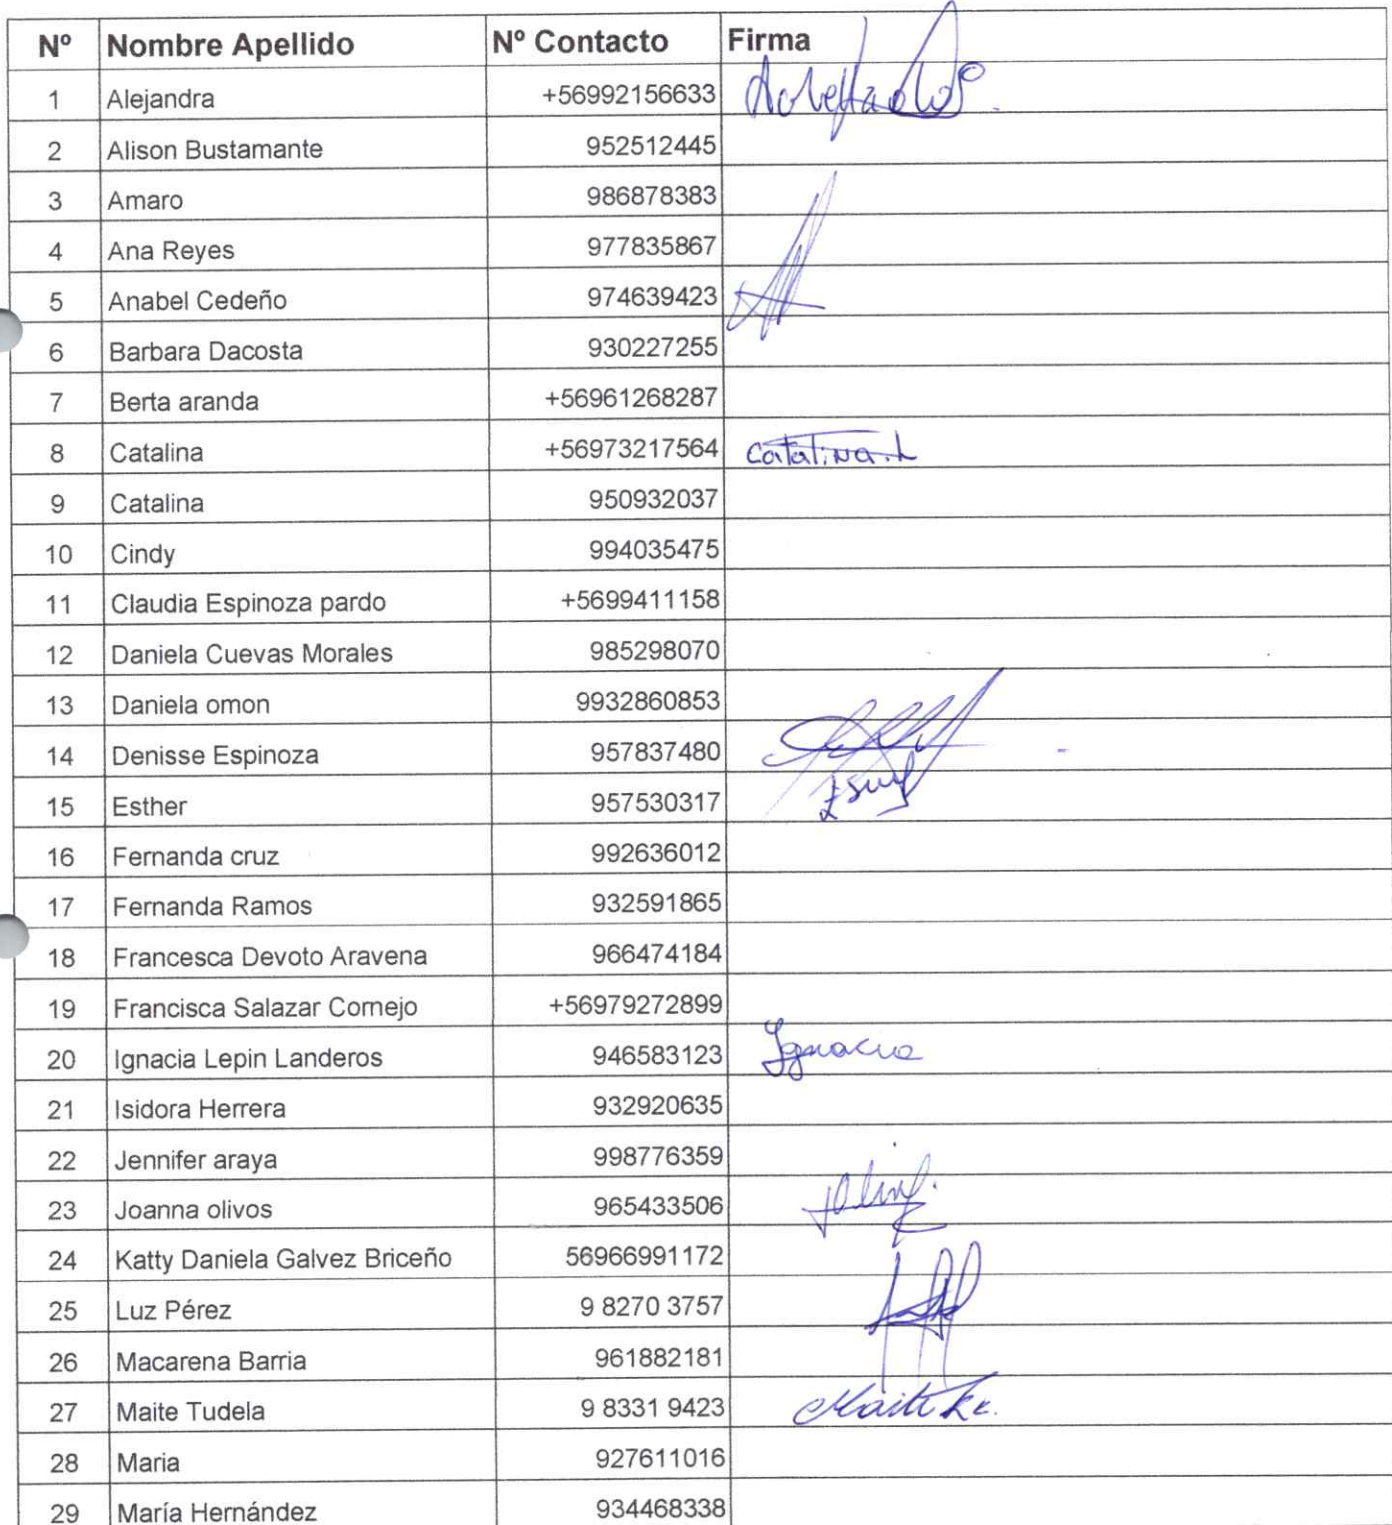 Nº Nombre Apellido Nº Contacto Firma
1 Alejandra +56992156633
2 Alison Bustamante 952512445
3 Amaro 986878383
4 Ana Reyes 977835867
5 Anabel Cedeño 974639423
6 Barbara Dacosta 930227255
7 Berta aranda +56961268287
8 Catalina +56973217564 Catalina.L
9 Catalina 950932037
10 Cindy 994035475
11 Claudia Espinoza pardo +5699411158
12 Daniela Cuevas Morales 985298070
13 Daniela omon 9932860853
14 Denisse Espinoza 957837480
15 Esther 957530317
16 Fernanda cruz 992636012
17 Fernanda Ramos 932591865
18 Francesca Devoto Aravena 966474184
19 Francisca Salazar Cornejo +56979272899
20 Ignacia Lepin Landeros 946583123 Ignacia
21 Isidora Herrera 932920635
22 Jennifer araya 998776359
23 Joanna olivos 965433506
24 Katty Daniela Galvez Briceño 56966991172
25 Luz Pérez 9 8270 3757
26 Macarena Barria 961882181
27 Maite Tudela 9 8331 9423 Maite
28 Maria 927611016
29 María Hernández 934468338